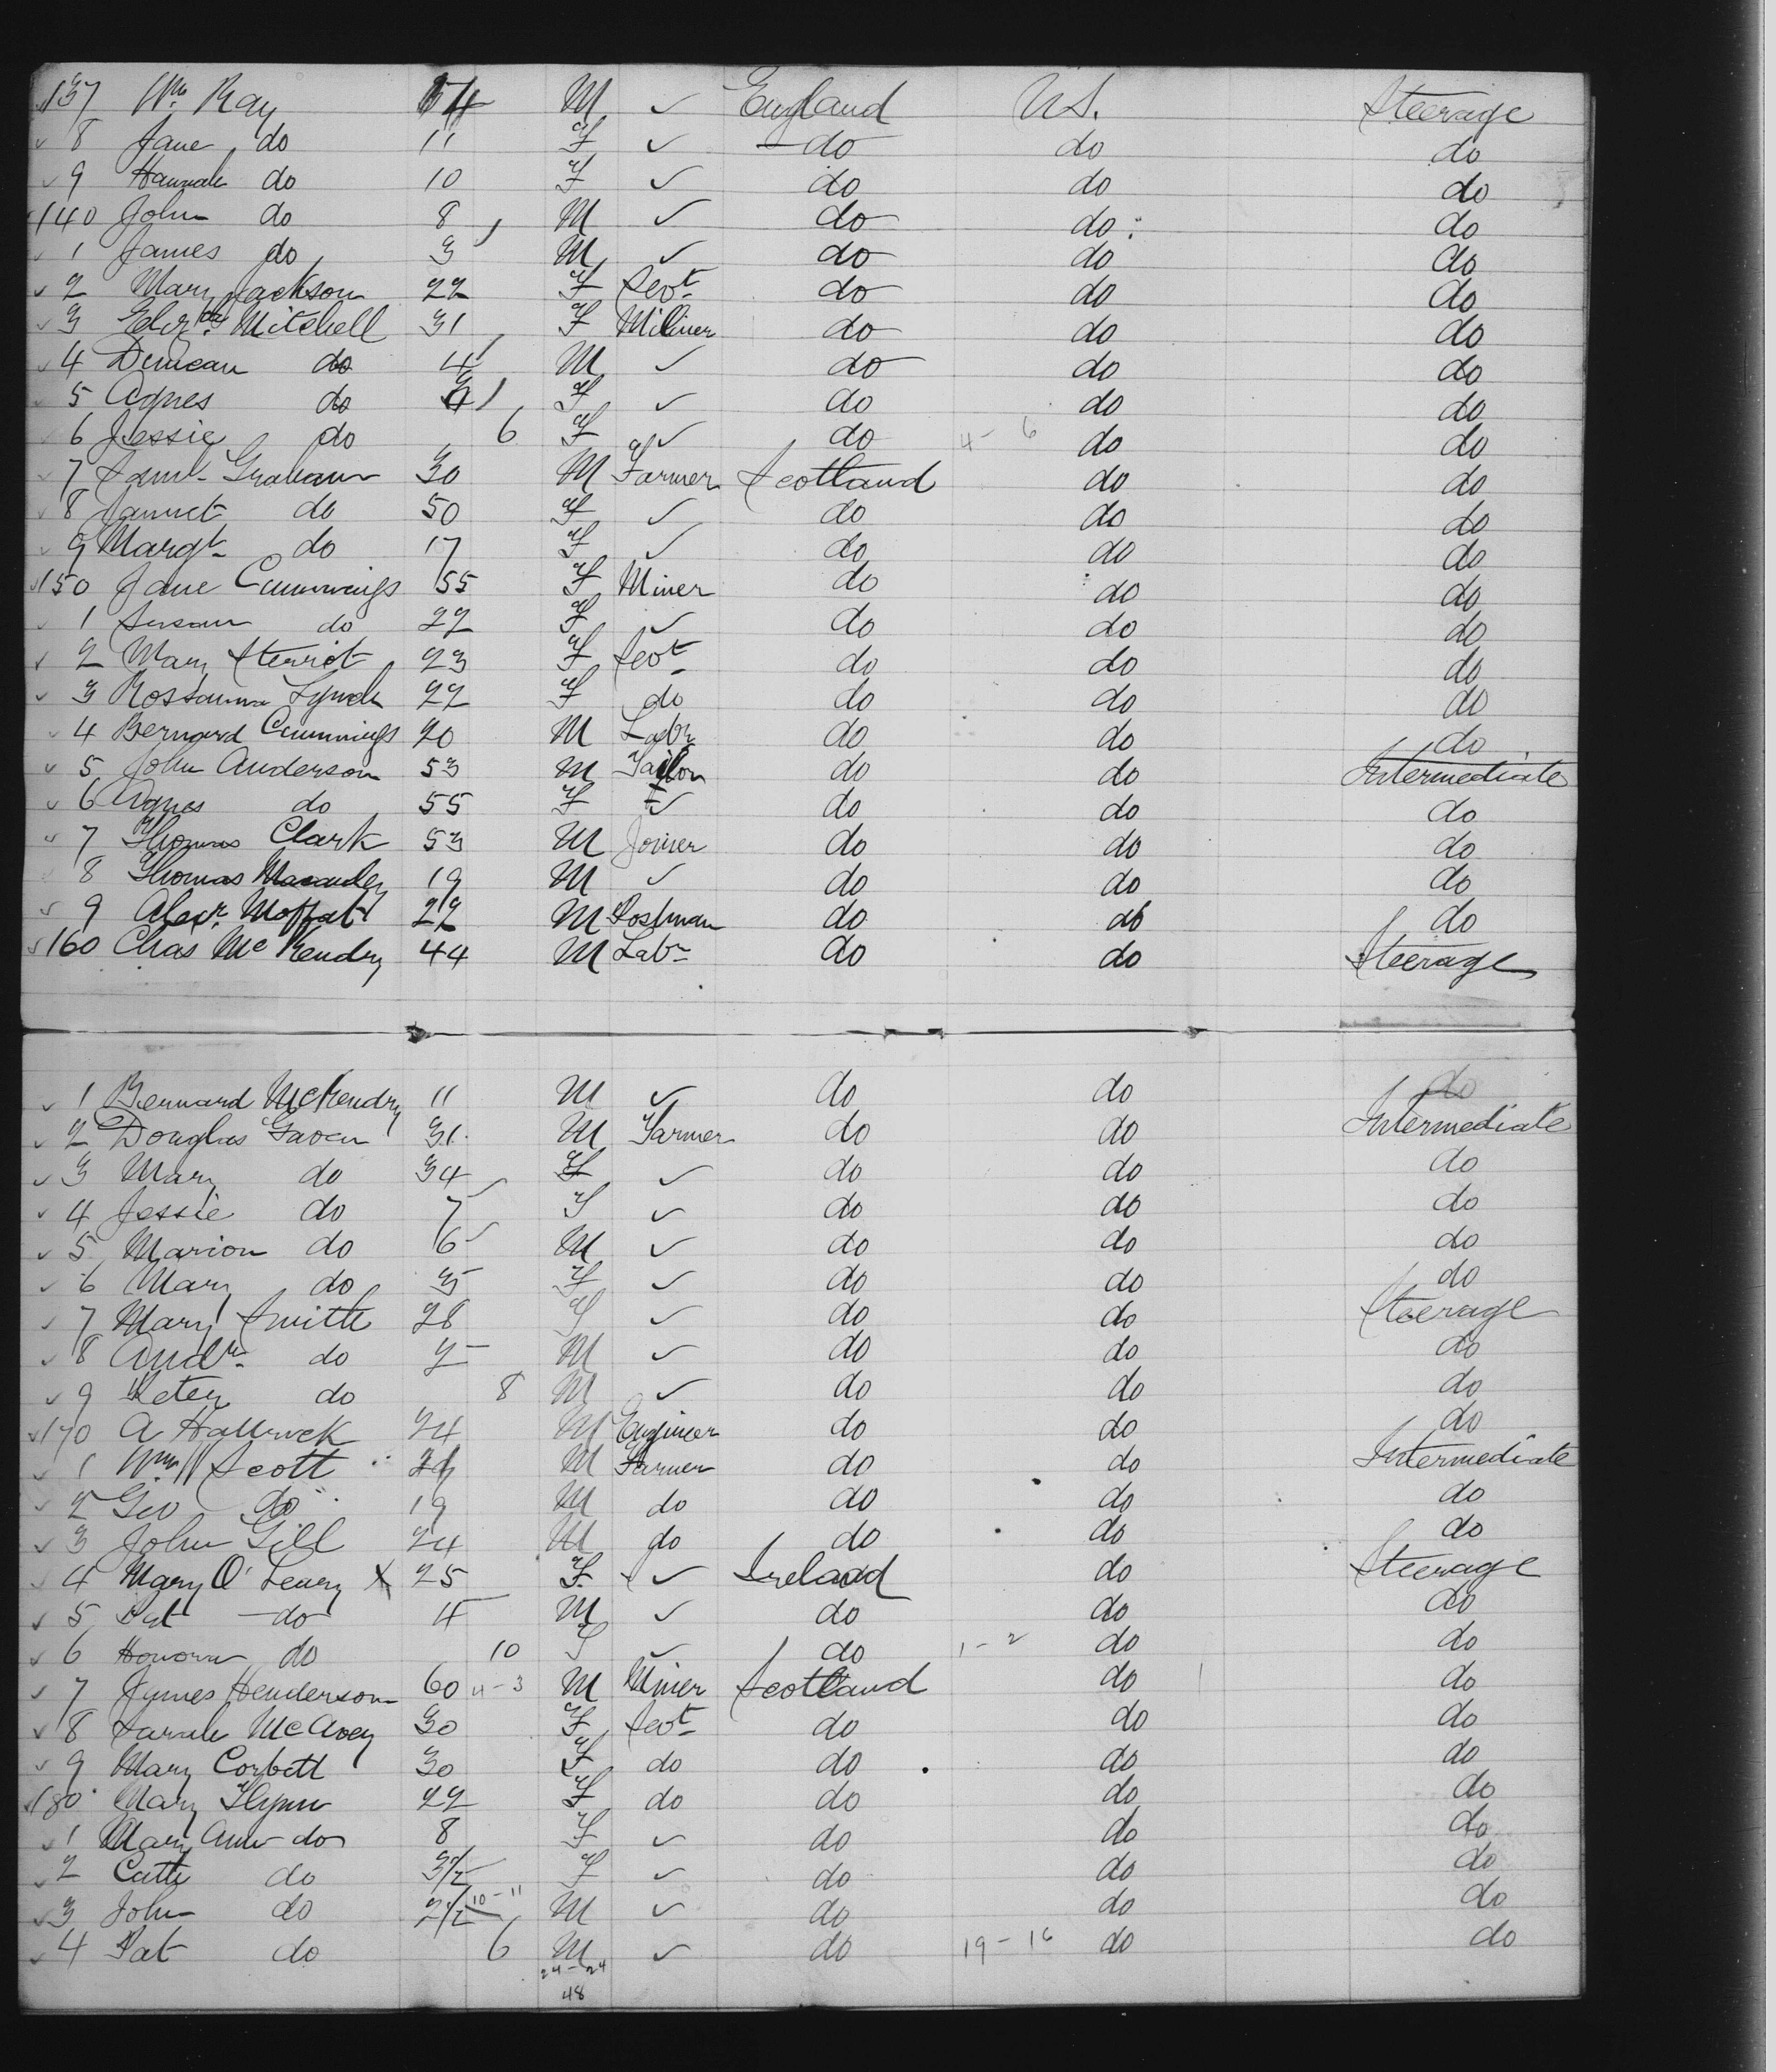 137 Wm Ray 14 M ✓ England U.S. Steerage
✓ 8 Jane do 11 F ✓ do do do
✓ 9 Hannah do 10 F ✓ do do do
140 John do 8 M ✓ do do do
✓ 1 James do 3 M ✓ do do do
✓ 2 Mary Jackson 22 F Sevt do do do
✓ 3 Elizth Mitchell 31 F Miliner do do do
✓ 4 Duncan do 4 M ✓ do do do
✓ 5 Agnes do 3 F ✓ do do do
6 Jessie do 6 F ✓ do 4-6 do do
✓ 7 Saml Graham 30 M Farmer Scotland do do
✓ 8 Jannet do 50 F ✓ do do do
✓ 9 Margt do 17 F ✓ do do do
✓ 150 Jane Cummings 55 F Miner do do do
✓ 1 Susan do 22 F ✓ do do do
✓ 2 Mary Sterrit 23 F Sevt do do do
✓ 3 Rossanna Lynch 22 F do do do do
✓ 4 Bernard Cummings 20 M Labr do do do
✓ 5 John Anderson 53 M Tailor do do Intermediate
✓ 6 Agnes do 55 F ✓ do do do
✓ 7 Thomas Clark 53 M Joiner do do do
8 Thomas 19 M ✓ do do do
✓ 9 Alexr Moffat 22 M Postman do do do
✓ 160 Chas McKendry 44 M Labr do do Steerage
✓ 1 Bernard McKendry 11 M ✓ do do do
✓ 2 Douglas Gaven 31 M Farmer do do Intermediate
✓ 3 Mary do 34 F ✓ do do do
✓ 4 Jessie do 7 F ✓ do do do
✓ 5 Marion do 6 M ✓ do do do
✓ 6 Mary do F ✓ do do do
✓ 7 Mary Smith 28 F ✓ do do Steerage
✓ 8 Andw do 2 M ✓ do do do
✓ 9 Peter do 8 M ✓ do do do
✓ 170 A 24 M Engineer do do do
✓ 1 Wm Scott M Farmer do do Intermediate
✓ 2 Geo do 19 M do do do do
✓ 3 John Gill 24 M do do do do
✓ 4 Mary O'Leary X 25 F ✓ Ireland do Steerage
✓ 5 Pat do 4 M ✓ do do do
✓ 6 Honora do 10 F ✓ do 1-2 do do
✓ 7 James Henderson 60 4-3 M Miner Scotland do do
✓ 8 Sarah McAvey 30 F Sevt do do do
✓ 9 Mary Corbett 30 F do do do do
✓ 180 Mary Flynn 22 F do do do do
✓ 1 Mary Ann do 8 F ✓ do do do
✓ 2 Cath do 3 1/2 F ✓ do do do
✓ 3 John do 2 1/2 10-11 M ✓ do do do
✓ 4 Pat do 6 M ✓ do 19-16 do do
24-24
48